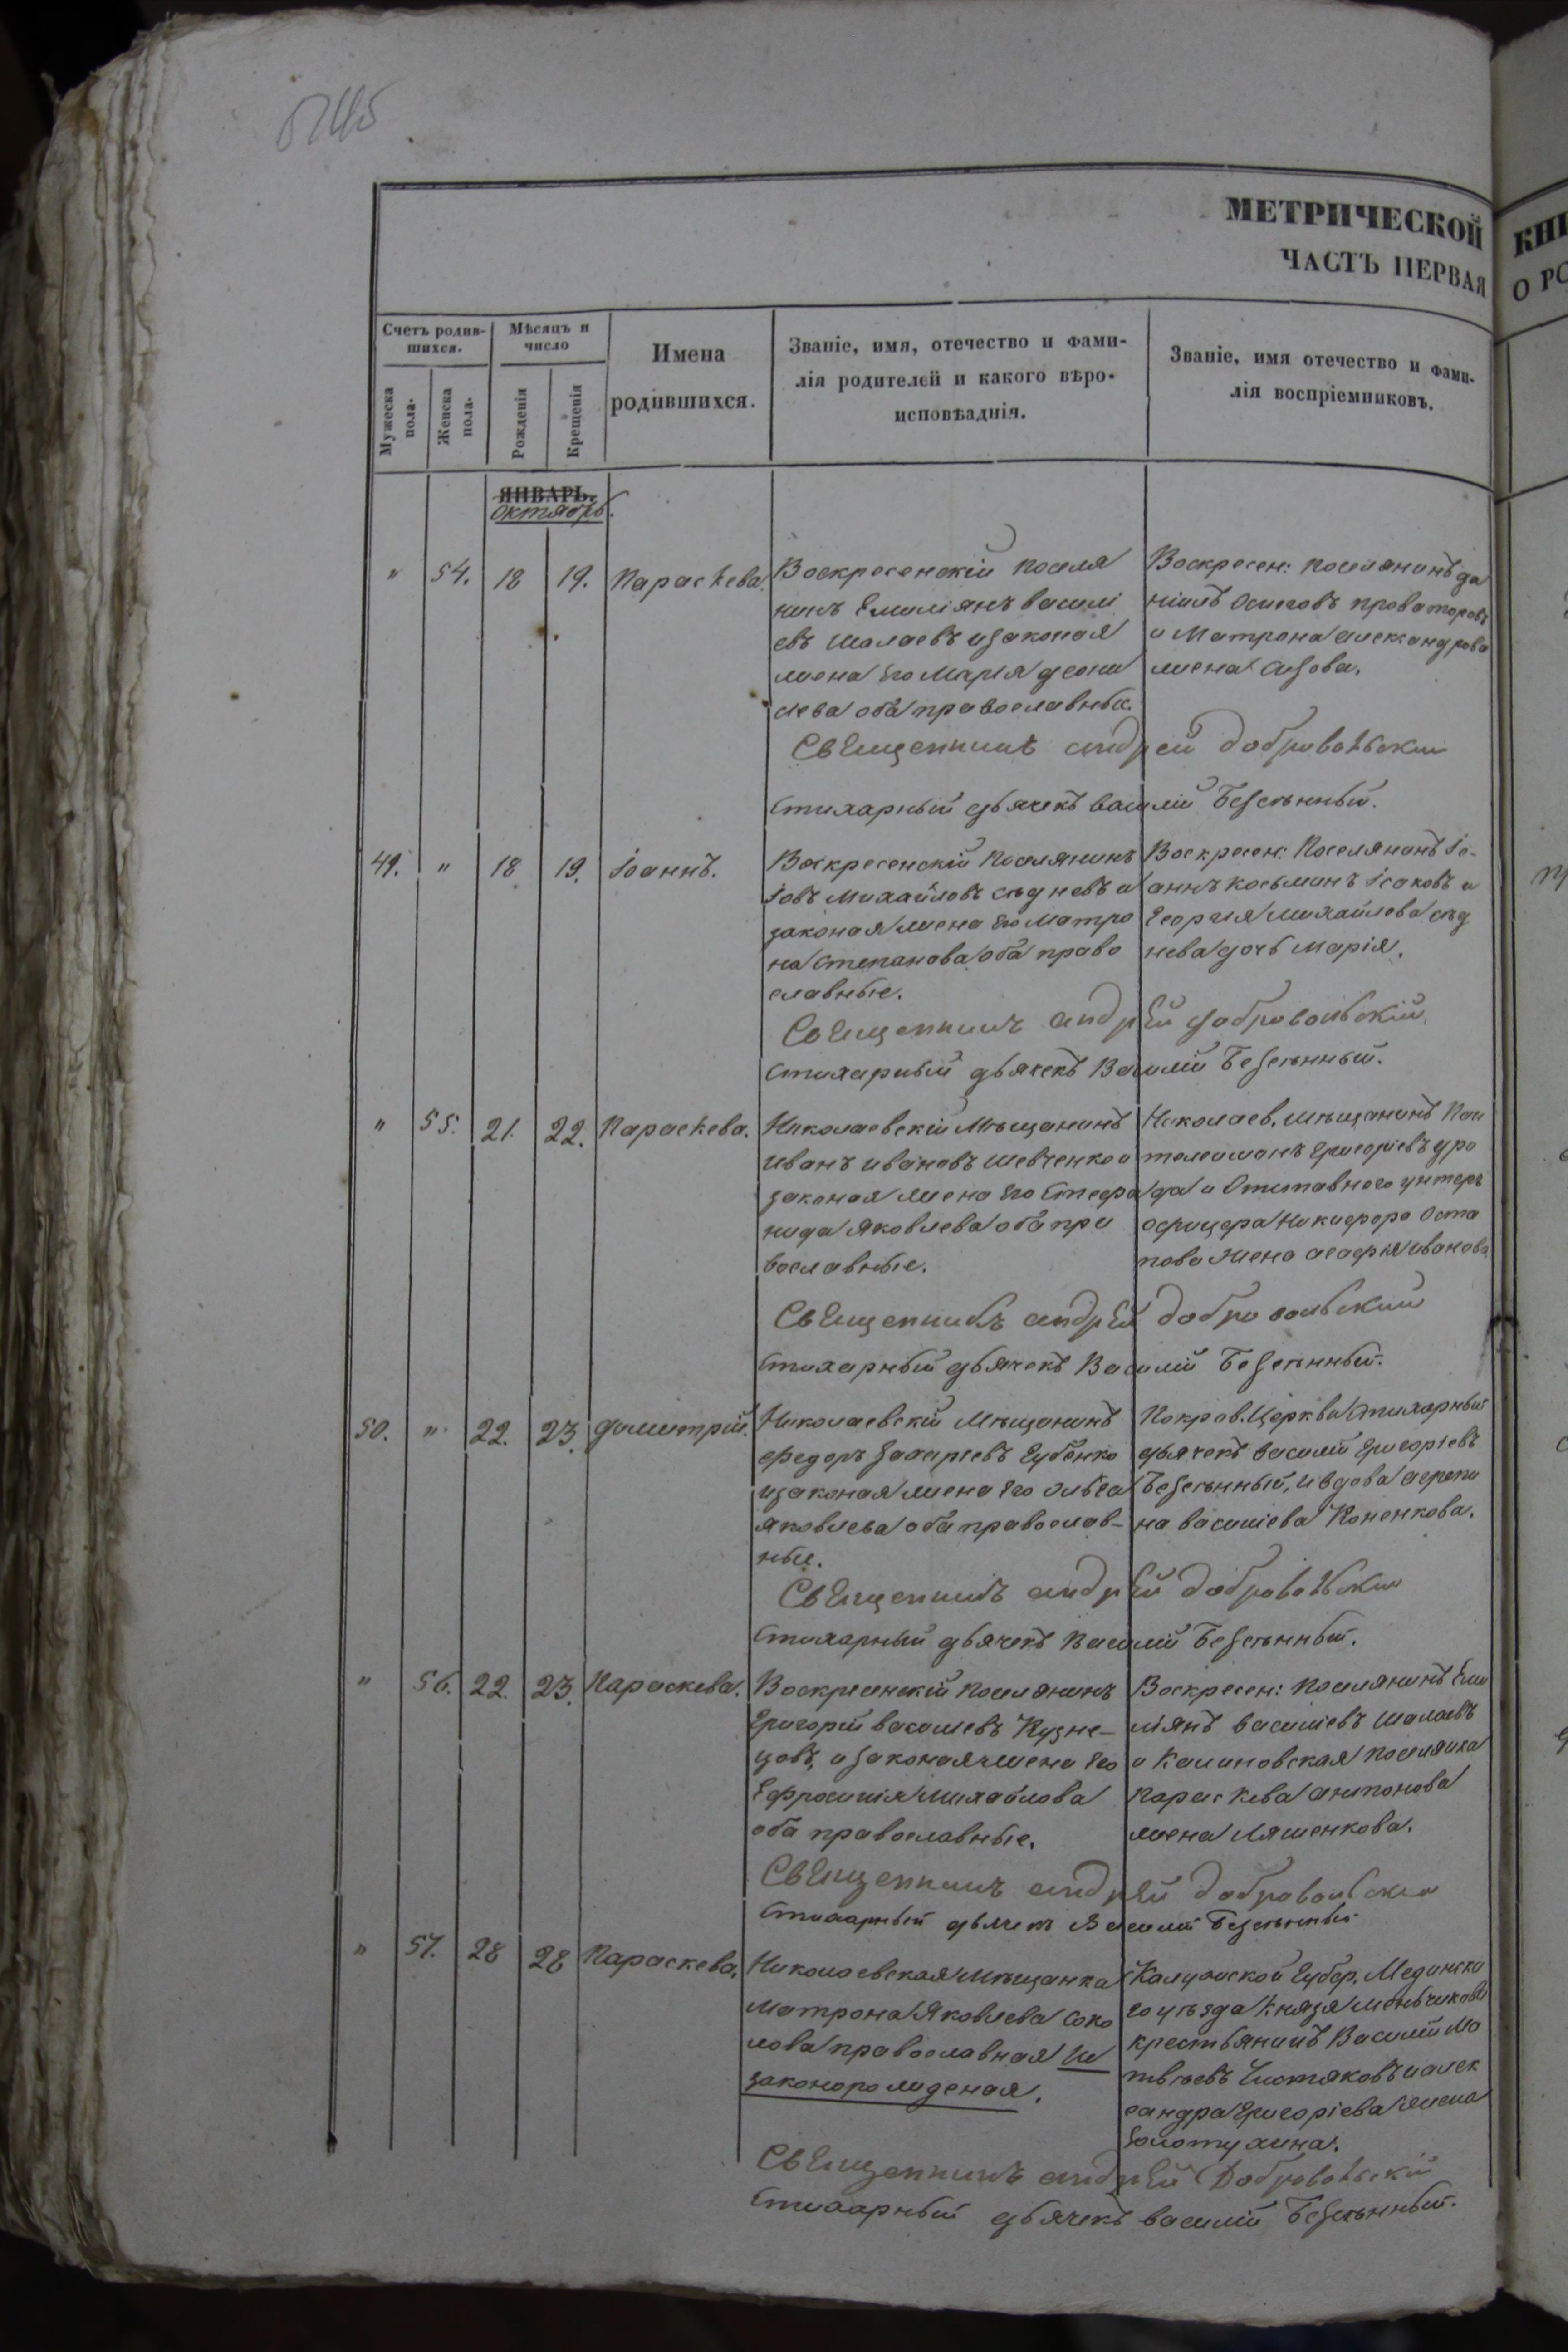 МЕТРИЧЕСКОЙ
КНИ
ЧАСТЬ ПЕРВАЯ
О РО
Счетъ родив-
шихся.
Мужеска
пола.
Женска
пола.
Мѣсяцъ и
число
Рожденія
Крещенія
Имена
родившихся.
Званіе, имя, отечество и фами-
лія родителей и какого вѣро-
исповѣаднія.
Званіе, имя отечество и фами-
лія воспріемниковъ.
ЯНВАРЬ.
октябрь.
" 54. 18 19. Параскева.
Воскресенскій поселя
нинъ Емиліянъ василі
евъ Шалаевъ изаконая
жена Его Марія деони
сева оба православные.
Воскресен: поселянинъ да
ніилъ Осиповъ Проваторовъ
и Матрона александрова
жена Сизова.
Священникъ андрей добровольскій
Стихарный дьячекъ василій Безсѣнный.
49. " 18 19. Іоаннъ.
Воскресенскій Поселянинъ
Іовъ Михайловъ Сѣдневъ и
законая жена Его Матро
на Степанова оба право
славные.
Воскресен: Поселянинъ Іо-
аннъ Косьминъ Ісаковъ и
Георгия Михайлова Сѣд
нева дочь Марія.
Священникъ андрЕй добровольскій
Стихарный дьячекъ Василій Безсѣнный.
" 55. 21. 22. Параскева.
Николаевскій Мѣщанинъ
Иванъ ивановъ Шевченко и
законая жена Его Стефа
нида Яковлева оба пра
вославные.
Николаев. мѣщанинъ Пан
телеимонъ Григоріевъ
и Отставного унтеръ
офицера Никифора Оста
пова жена агафія иванова
Священникъ андрЕй добровольский
Стихарный дьячекъ Василій Безсѣнный.
50. " 22. 23. димитрій.
Николаевскій Мѣщанинъ
Федоръ Захаріевъ Губенко
изаконая жена Его Ольга
яковлева оба православ-
ные.
Покров. Церкви Стихарный
дьячекъ василій Григоріевъ
Безсѣнный, ивдова агрепи
на василіева Кононкова.
Священникъ андрЕй добровольскій
Стихарный дьячекъ Василій Безсѣнный.
" 56. 22. 23. Параскева.
Воскресенскій поселянинъ
Григорій василіевъ Кузне-
цовъ, изаконая жена Его
Ефросинія Михайлова
оба православные.
Воскресен: поселянинъ Еми
ліянъ василіевъ Шалаевъ
и Калиновская поселянка
параскева антонова
жена Ляшенкова.
Священникъ андрЕй добровольскій
Стихарный дьячекъ Василій Безсѣнный
" 57. 28 28 Параскева.
Николаевская мѣщанка
Матрона Яковлева Соко
лова православная Не
законорожденая.
Калужской Губер. Медынска
го уѣзда Князя Меньчикова
крестьянинъ Василій Ма
твѣевъ Чистяковъ иалек
сандра Григоріева жена
Золотухина.
Священникъ андрЕй Добровольскій
Стихарный дьячекъ василій Безсѣнный.